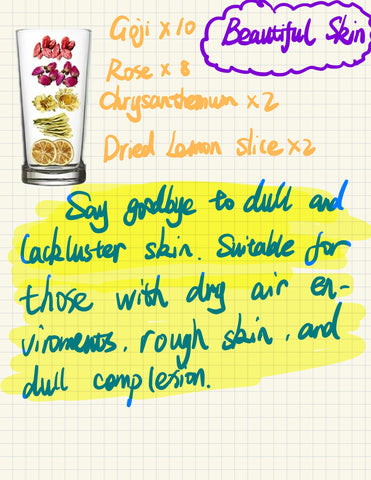 Goji x 10
Beautiful Skin
Rose x 8
Chrysanthemum x 2
Dried Lemon slice x 2
Say goodbye to dull and
lackluster skin. Suitable for
those with dry air en-
viroments, rough skin, and
dull complexion.